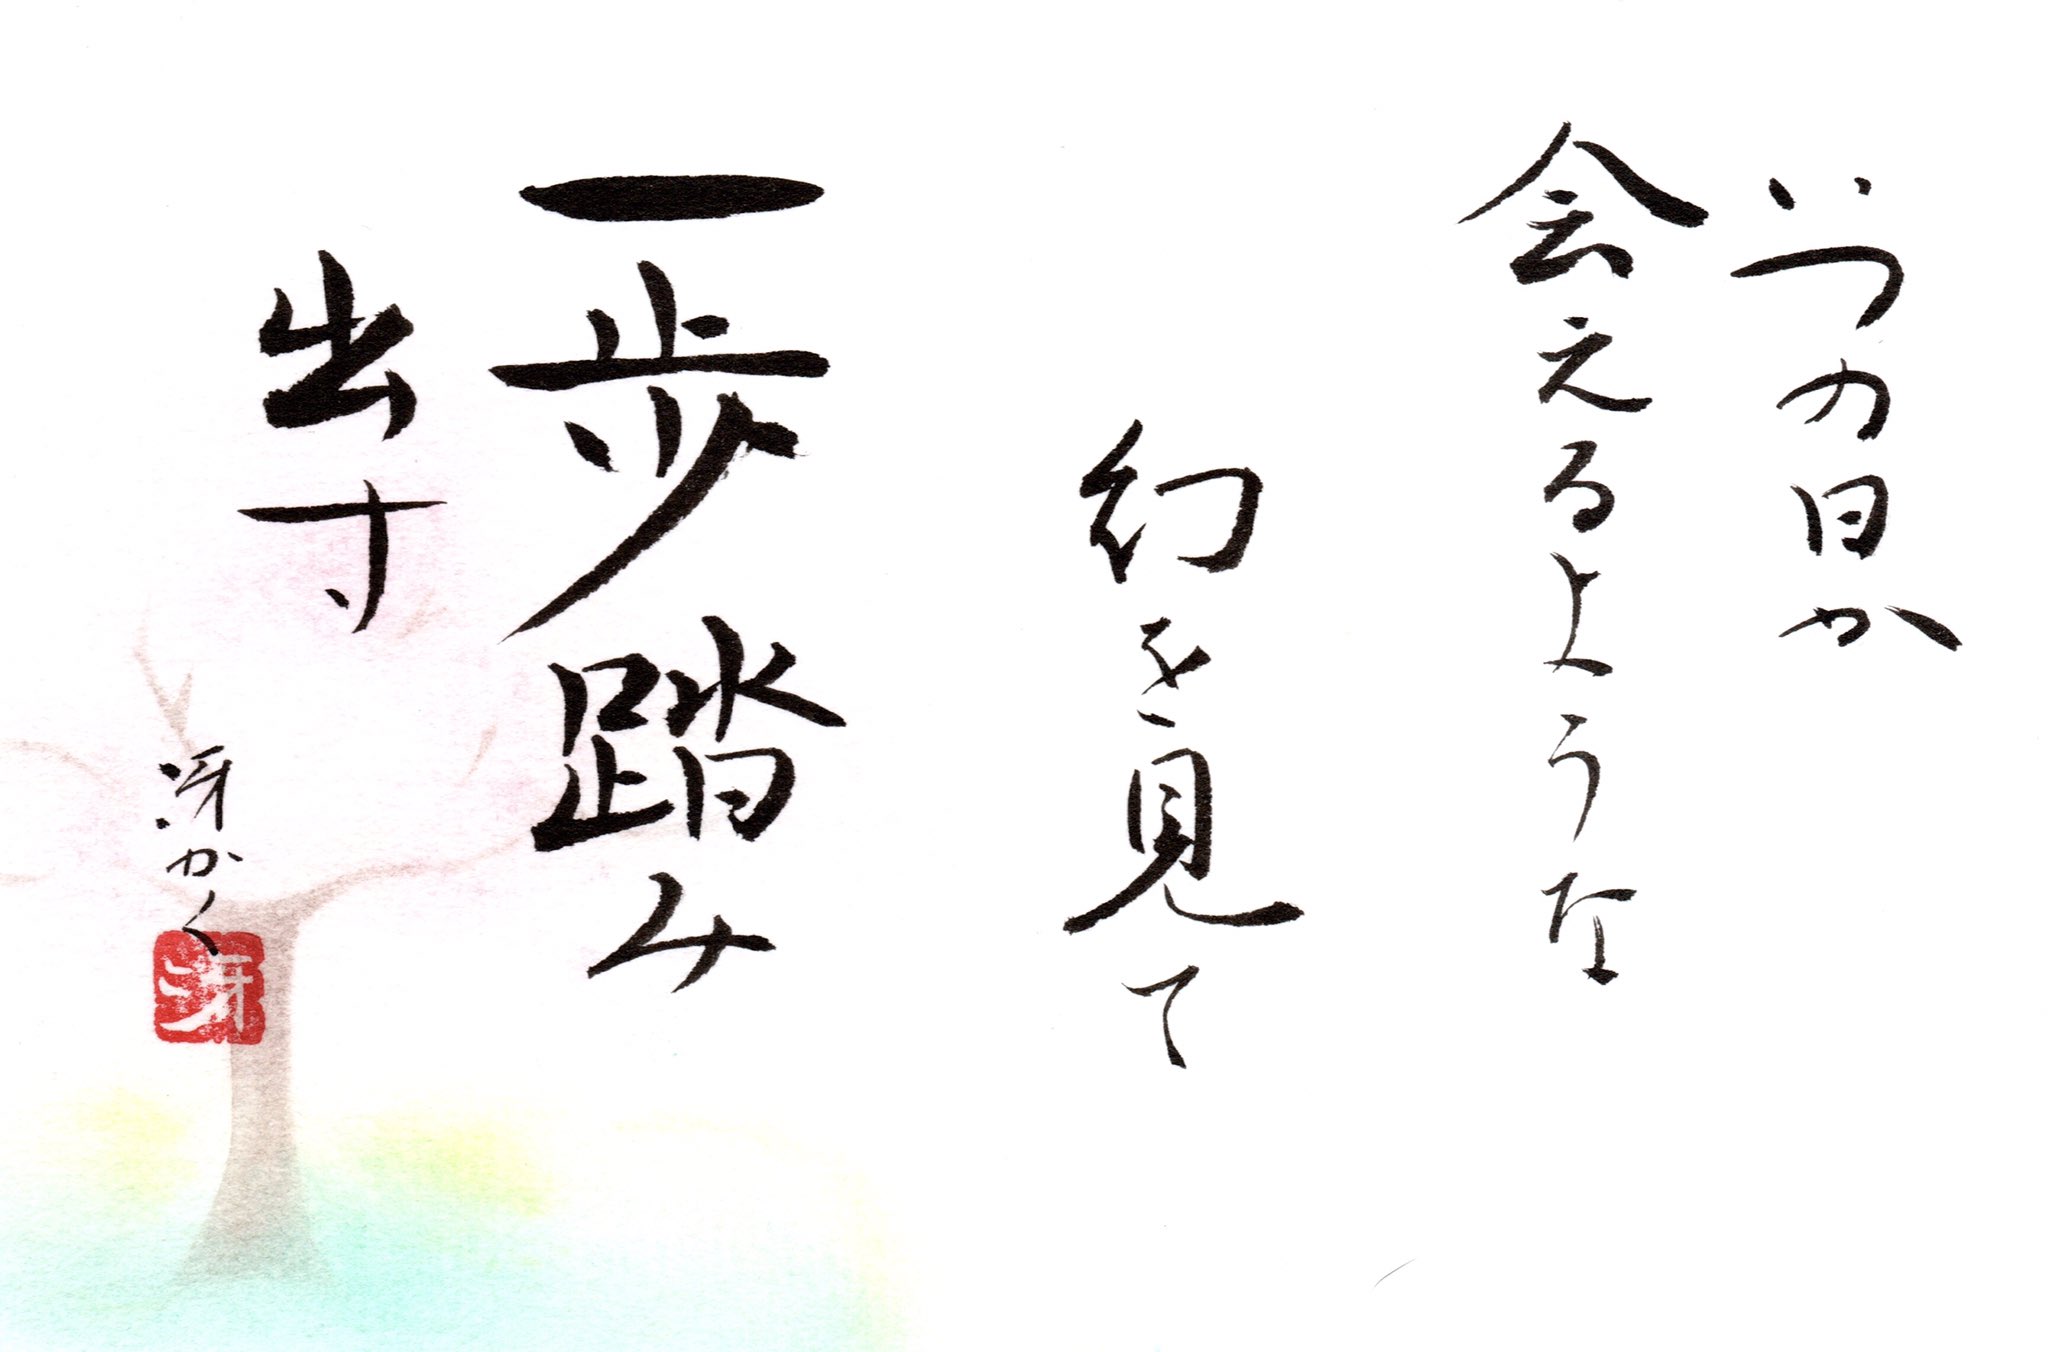 いつの日か
会えるような
幻を見て
一歩踏み
出す
冴かく
冴